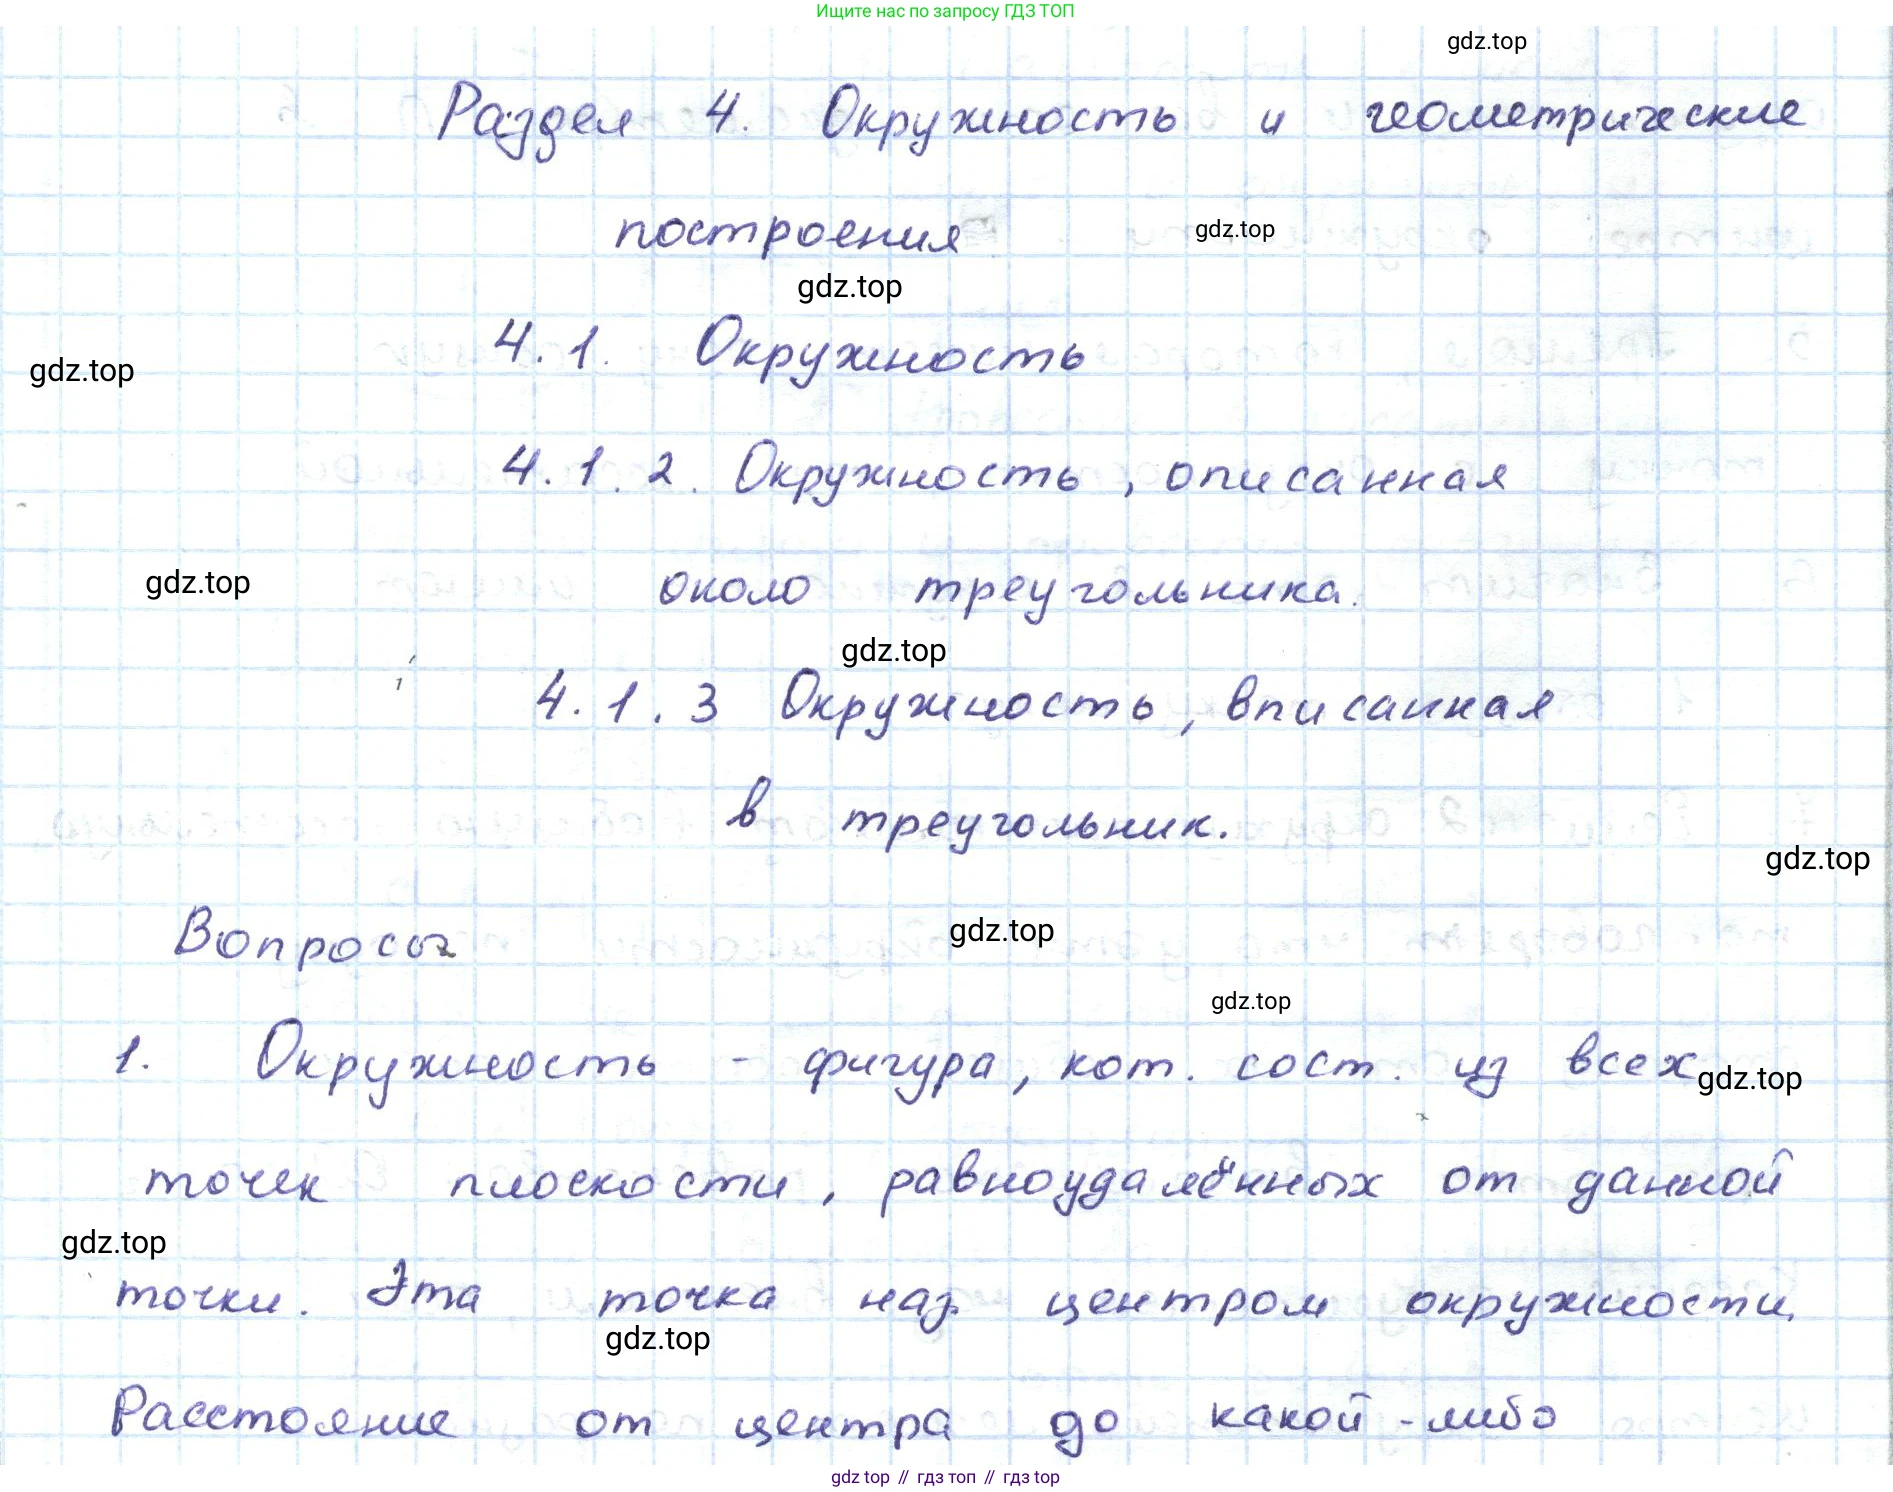 Ищите нас по запросу ГДЗ ТОП
gdz.top
Раздел 4. Окружность и геометрические
построения
gdz.top
gdz.top
4.1. Окружность
gdz.top
4.1.2. Окружность, описанная
около треугольника.
gdz.top
gdz.top
4.1.3 Окружность, вписанная
в треугольник.
gdz.top
Вопросы
gdz.top
gdz.top
1. Окружность - фигура, кот. сост. из всех
gdz.top
точек плоскости, равноудалённых от данной
gdz.top
точки. Эта точка наз. центром окружности.
gdz.top
Расстояние от центра до какой-либо
gdz top // гдз топ // гдз top